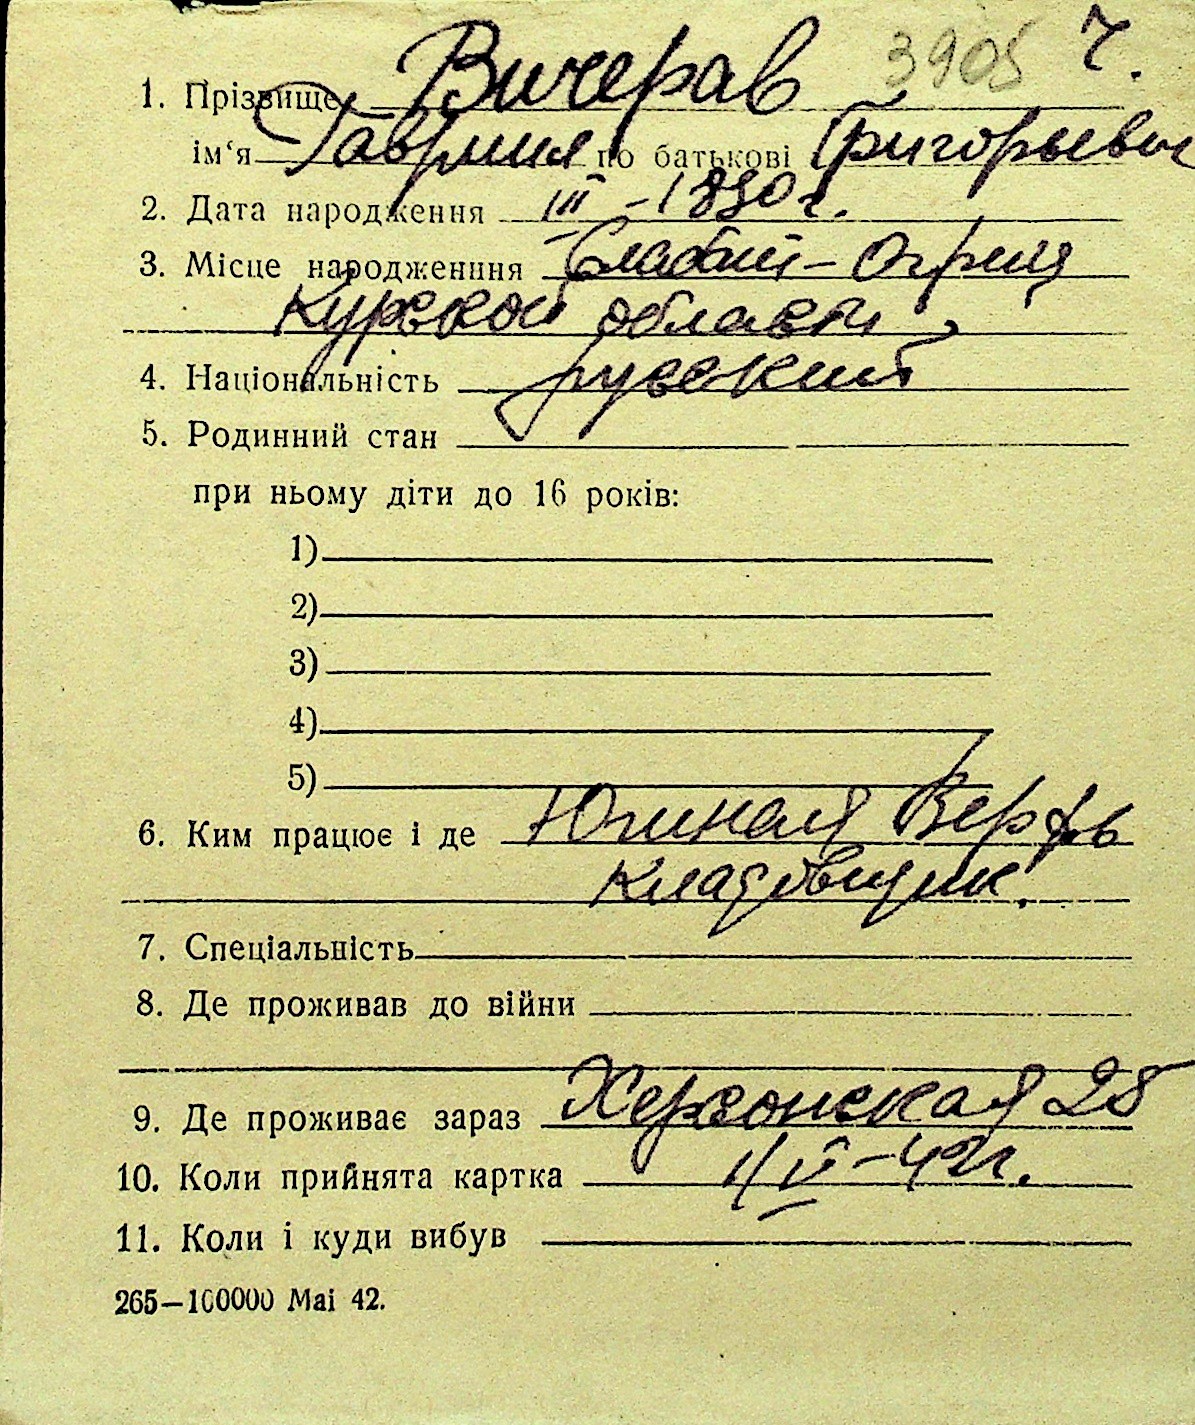 3905 ч.
1. Прізвище Вичерав
ім‘я Гаврил по батькові Григорьевич
2. Дата народження III – 1890 г.
3. Місце народженння
Курской области,
4. Національність русский
5. Родинний стан
при ньому діти до 16 років:
1)
2)
3)
4)
5)
6. Ким працює і де Южная Верфь
Кладовщик.
7. Спеціальність
8. Де проживав до війни
9. Де проживає зараз Херсонская 28
10. Коли прийнята картка – 42 г.
11. Коли і куди вибув
265—100000 Mai 42.